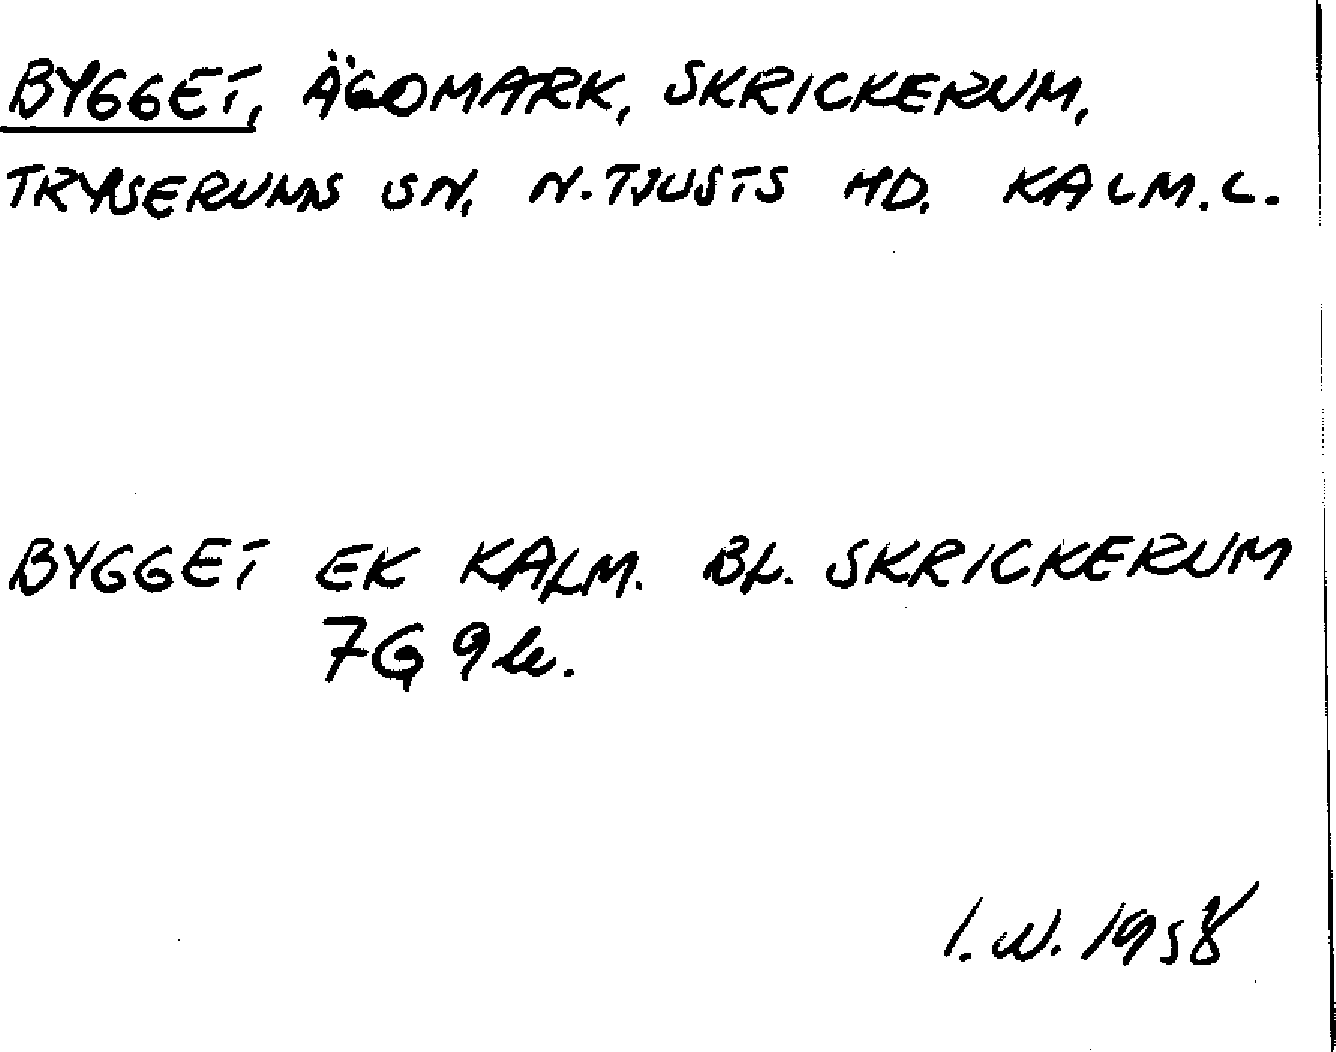 BYGGET, ÄGOMARK, SKRICKERUM,
TRYSERUMS SN, N. TJUSTS HD. KALM. L.
BYGGET EK KALM. BL. SKRICKERUM
7G 9
I. W. 1958